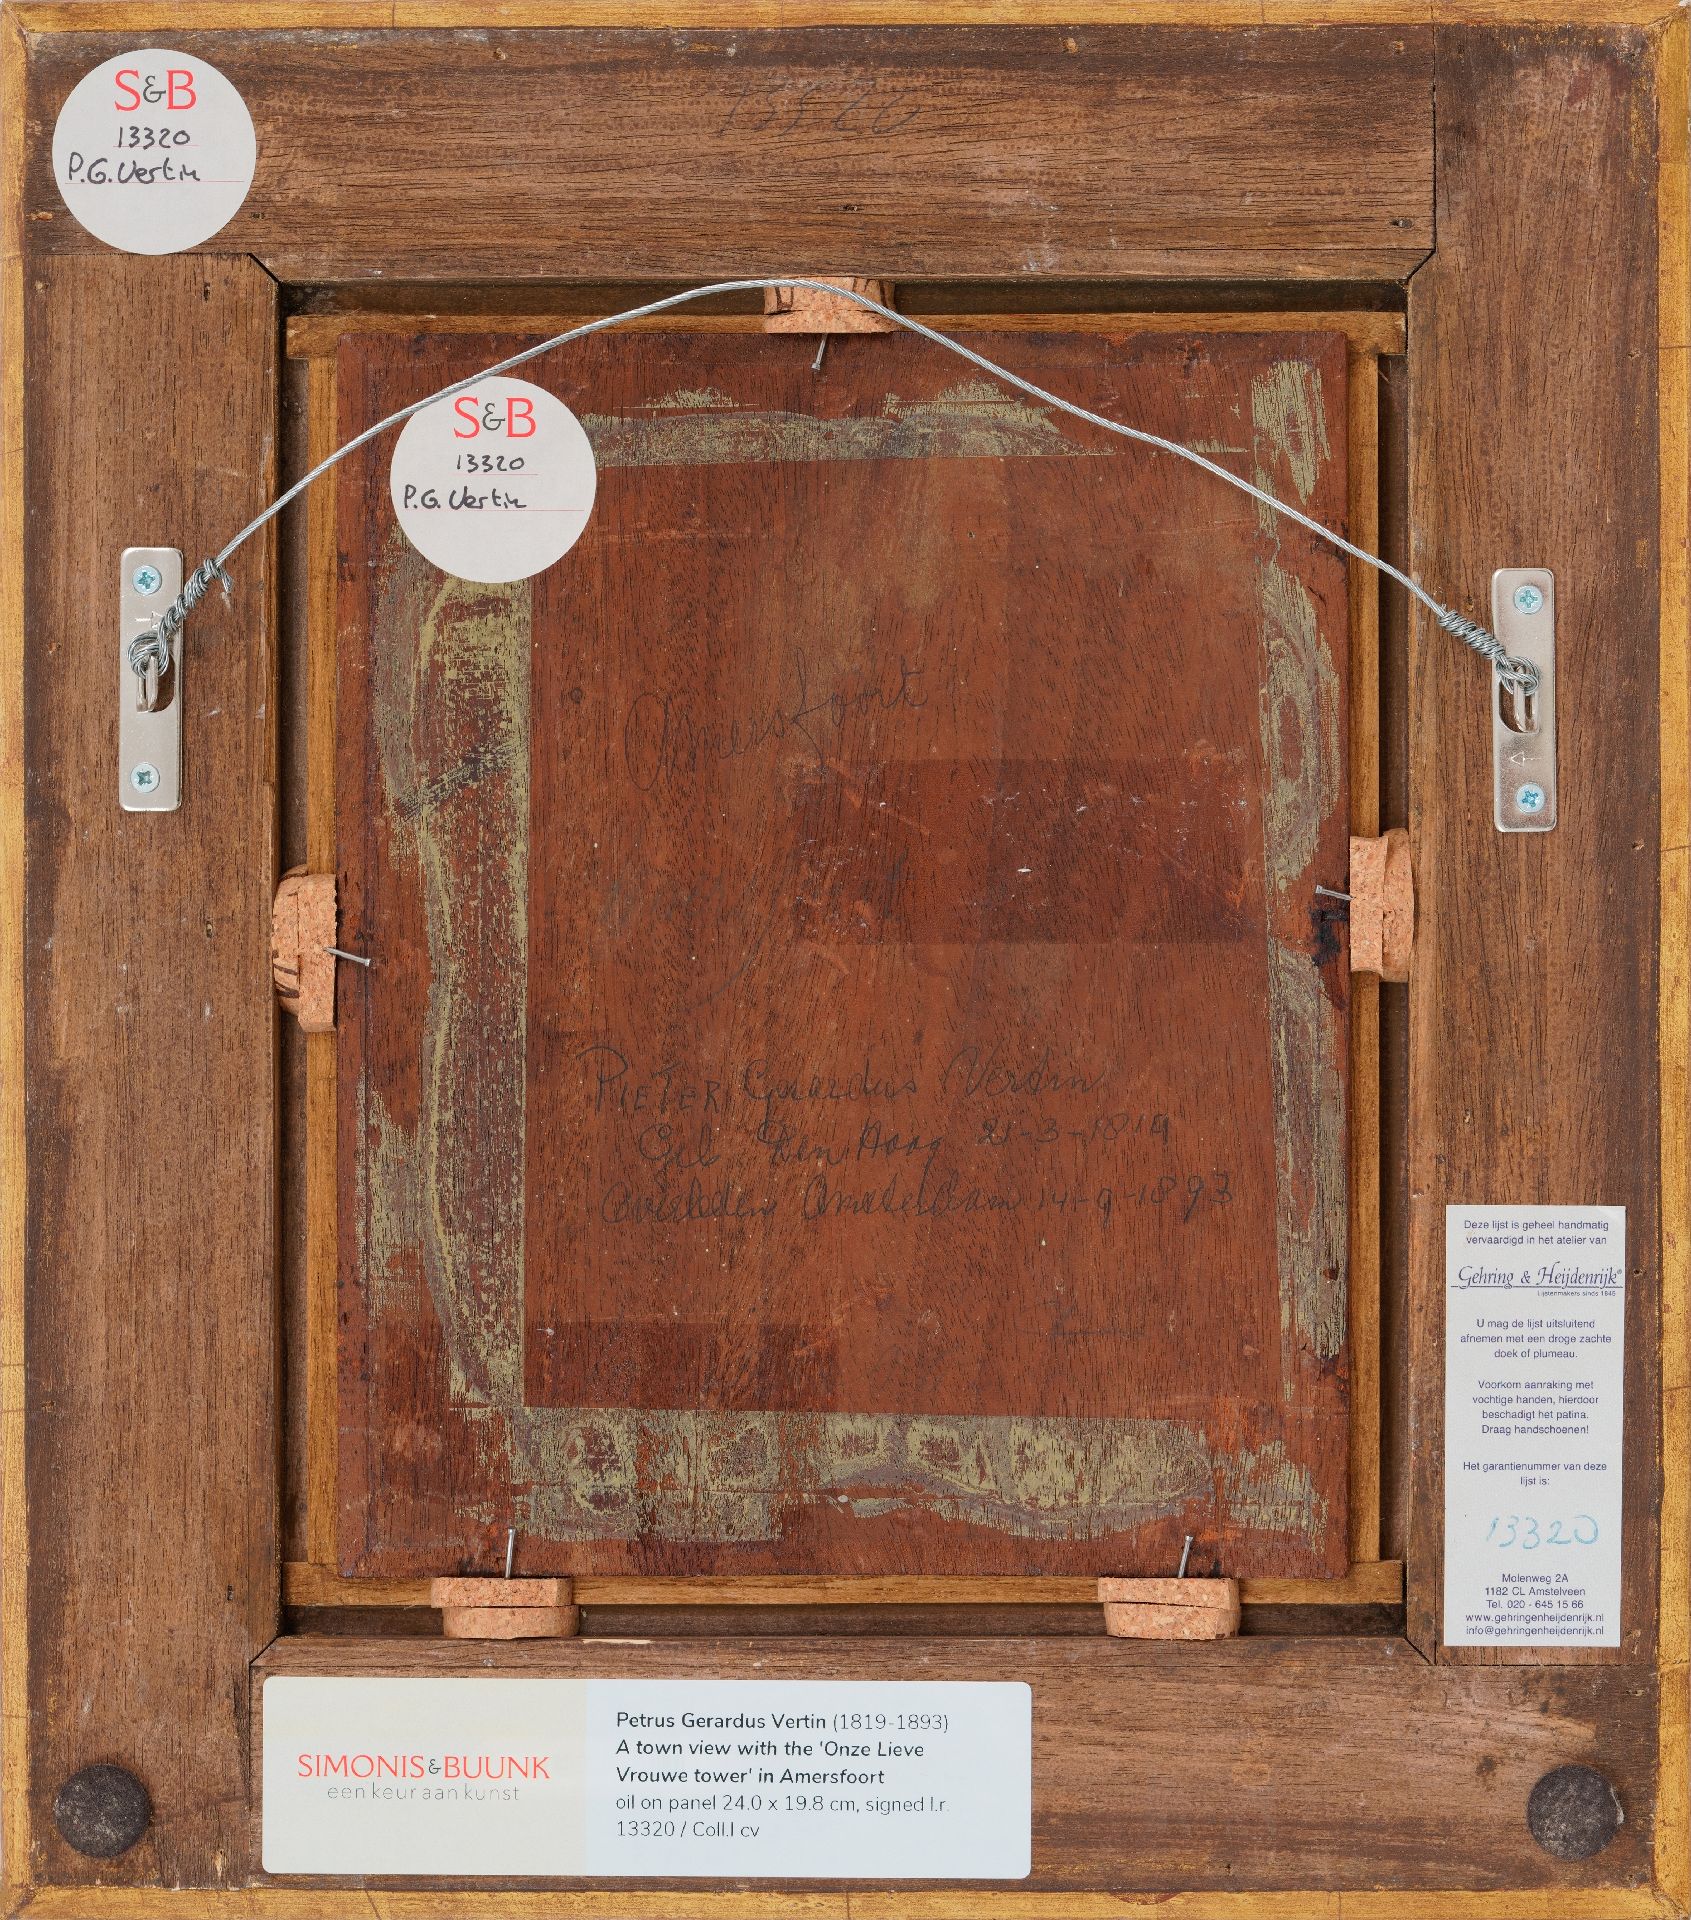 S&B
13320
P.G. Vertin
13320
S&B
13320
P.G. Vertin
Amersfoort
PIETER Gerardus Vertin
Geb Den Haag 21-3-1819
overleden Amsterdam 14-9-1893
Deze lijst is geheel handmatig
vervaardigd in het atelier van
Gehring & Heijdenrijk®
Lijstenmakers sinds 1945
U mag de lijst uitsluitend
afnemen met een droge zachte
doek of plumeau.
Voorkom aanraking met
vochtige handen, hierdoor
beschadigt het patina.
Draag handschoenen!
Het garantienummer van deze
lijst is:
13320
Molenweg 2A
1182 CL Amstelveen
Tel. 020 - 645 15 66
www.gehringenheijdenrijk.nl
info@gehringenheijdenrijk.nl
SIMONIS&BUUNK
een keur aan kunst
Petrus Gerardus Vertin (1819-1893)
A town view with the 'Onze Lieve
Vrouwe tower' in Amersfoort
oil on panel 24.0 x 19.8 cm, signed l.r.
13320 / Coll.l cv